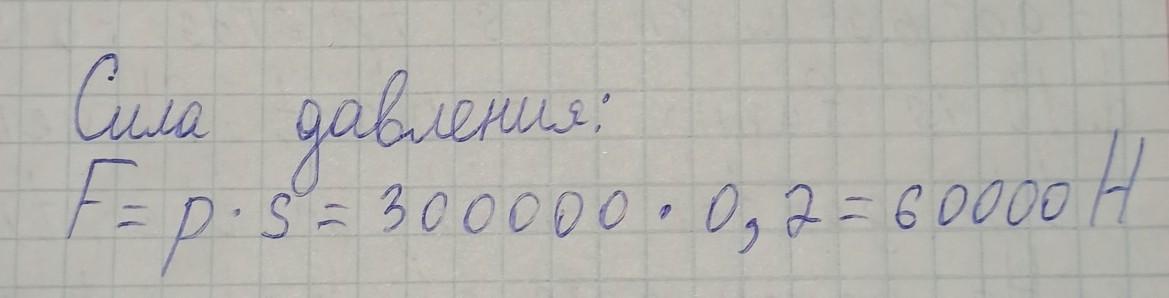 Сила давления:
F = p · s = 300000 · 0,2 = 60000 Н